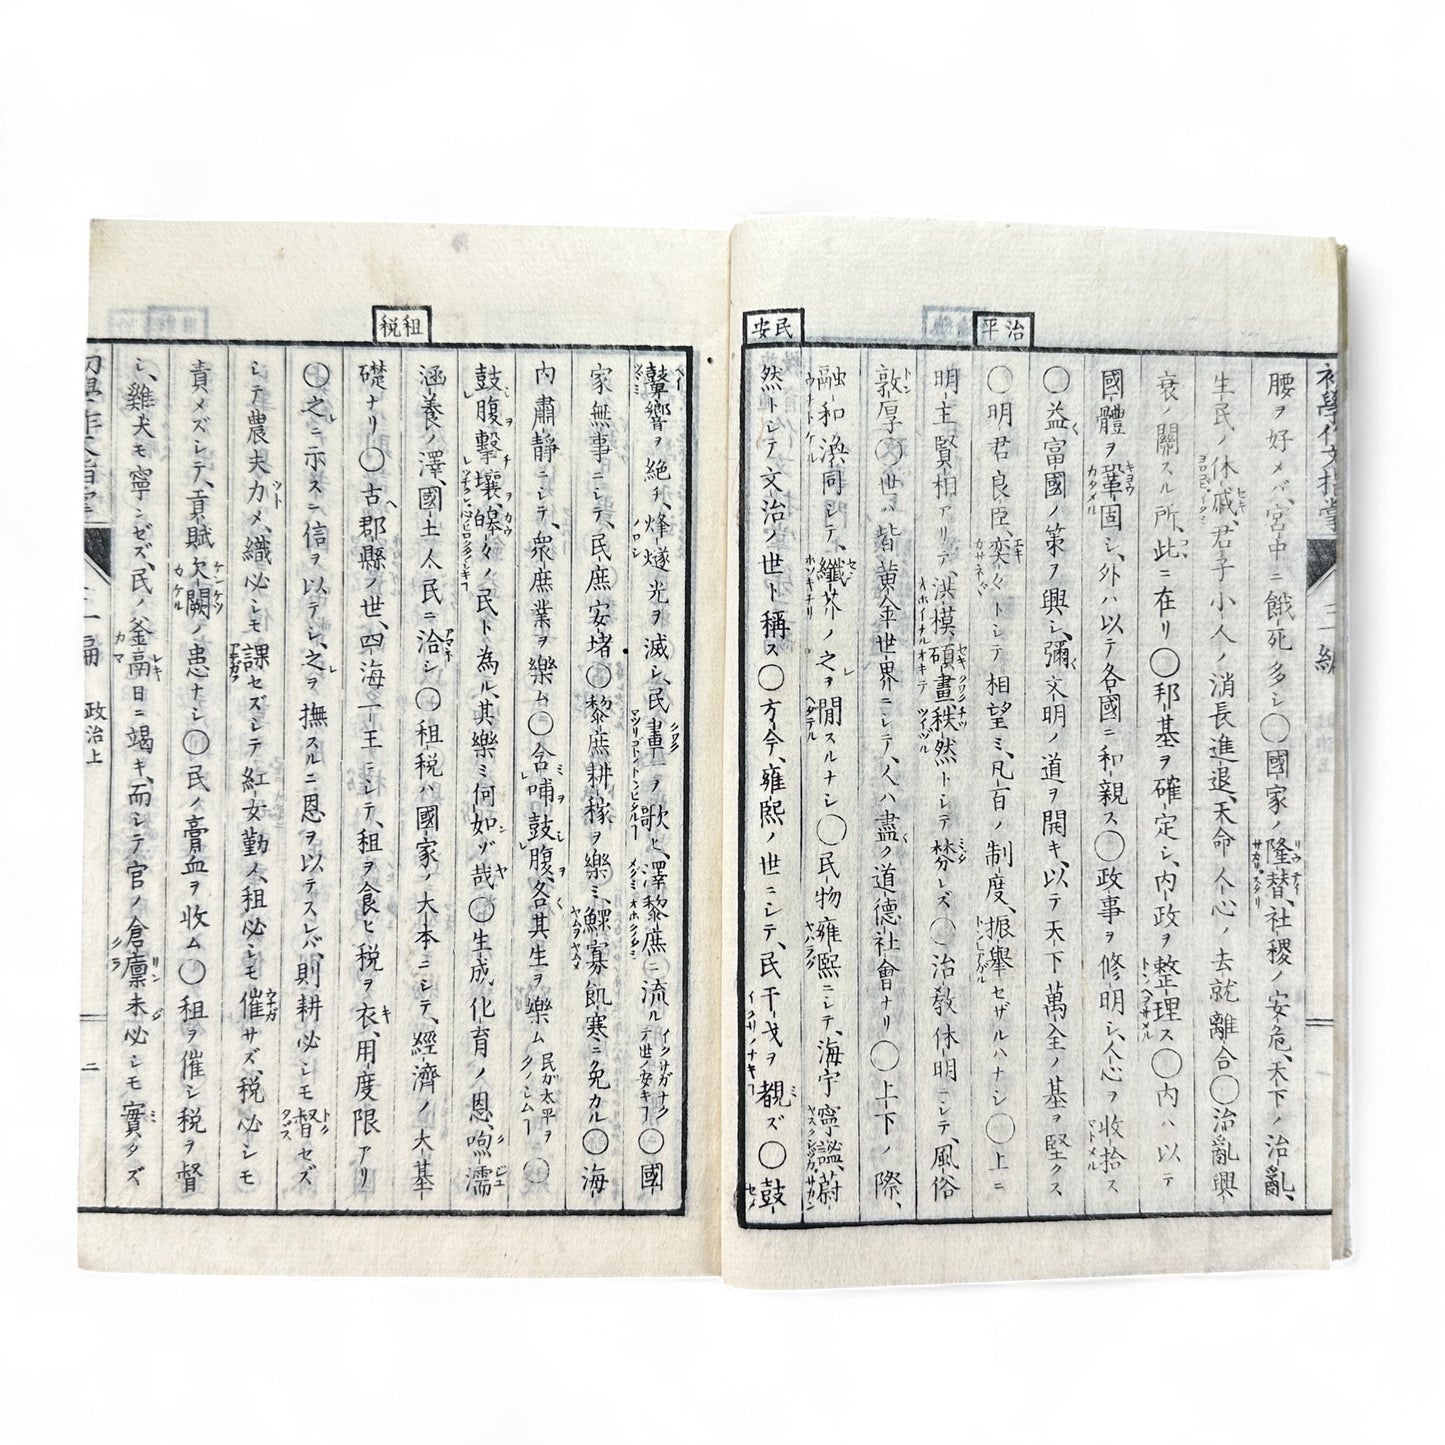 治平
民安
腰ヲ好メバ、宮中ニ餓死多シ〇國家ノ隆替、社稷ノ安危、天下ノ治亂、
生民ノ休戚、君子小人ノ消長進退、天命人心ノ去就離合〇治亂興
衰ノ關スル所、此ニ在リ〇邦基ヲ確定シ、内政ヲ整理ス〇内ハ以テ
國體ヲ鞏固シ、外ハ以テ各國ニ和親ス〇政事ヲ修明シ、人心ヲ收拾ス
〇益富國ノ策ヲ興シ、彌文明ノ道ヲ開キ、以テ天下萬全ノ基ヲ堅クス
〇明君良臣、奕々トシテ相望ミ、凡百ノ制度、振舉セザルハナシ〇上ニ
明主賢相アリテ、洪模碩畫、秩然トシテ棼レズ〇治敎休明ニシテ、風俗
敦厚〇世ハ皆黄金世界ニシテ、人ハ盡ク道德社會ナリ〇上下ノ際、
融和渙同シテ、纖芥ノ之ヲ間スルナシ〇民物雍熙ニシテ、海宇寧謐、蔚
然トシテ文治ノ世ト稱ス〇方今、雍熙ノ世ニシテ、民干戈ヲ覩ズ〇鼓
租税
鼙響ヲ絶チ、烽燧光ヲ滅シ、民畫一ヲ歌ヒ、澤黎庶ニ流ル〇國
家無事ニシテ、民庶安堵〇黎庶耕稼ヲ樂ミ、鰥寡飢寒ニ免カル〇海
内肅靜ニシテ、衆庶業ヲ樂ム〇含哺鼓腹、各其生ヲ樂ム 民ガ太平ヲタノシム〇
鼓腹擊壤、皞々ノ民ト為ル、其樂ミ何如ゾ哉〇生成化育ノ恩、呴濡
涵養ノ澤、國土人民ニ洽シ〇租税ハ國家ノ大本ニシテ、經濟ノ大基
礎ナリ〇古郡縣ノ世、四海一王ニシテ、租ヲ食ヒ税ヲ衣、用度限アリ
〇之ニ示スニ信ヲ以テシ、之ヲ撫スルニ恩ヲ以テスレバ、則耕必シモ督セズ
シテ農夫力メ、織必シモ課セズシテ紅女勤ム、租必シモ催サズ、税必シモ
責メズシテ、貢賦欠闕ノ患ナシ〇民ノ膏血ヲ收ム〇租ヲ催シ税ヲ督
シ、雞犬モ寧ンゼズ、民ノ釜鬲日ニ竭キ、而シテ官ノ倉廩未必シモ實タズ
政治上
二